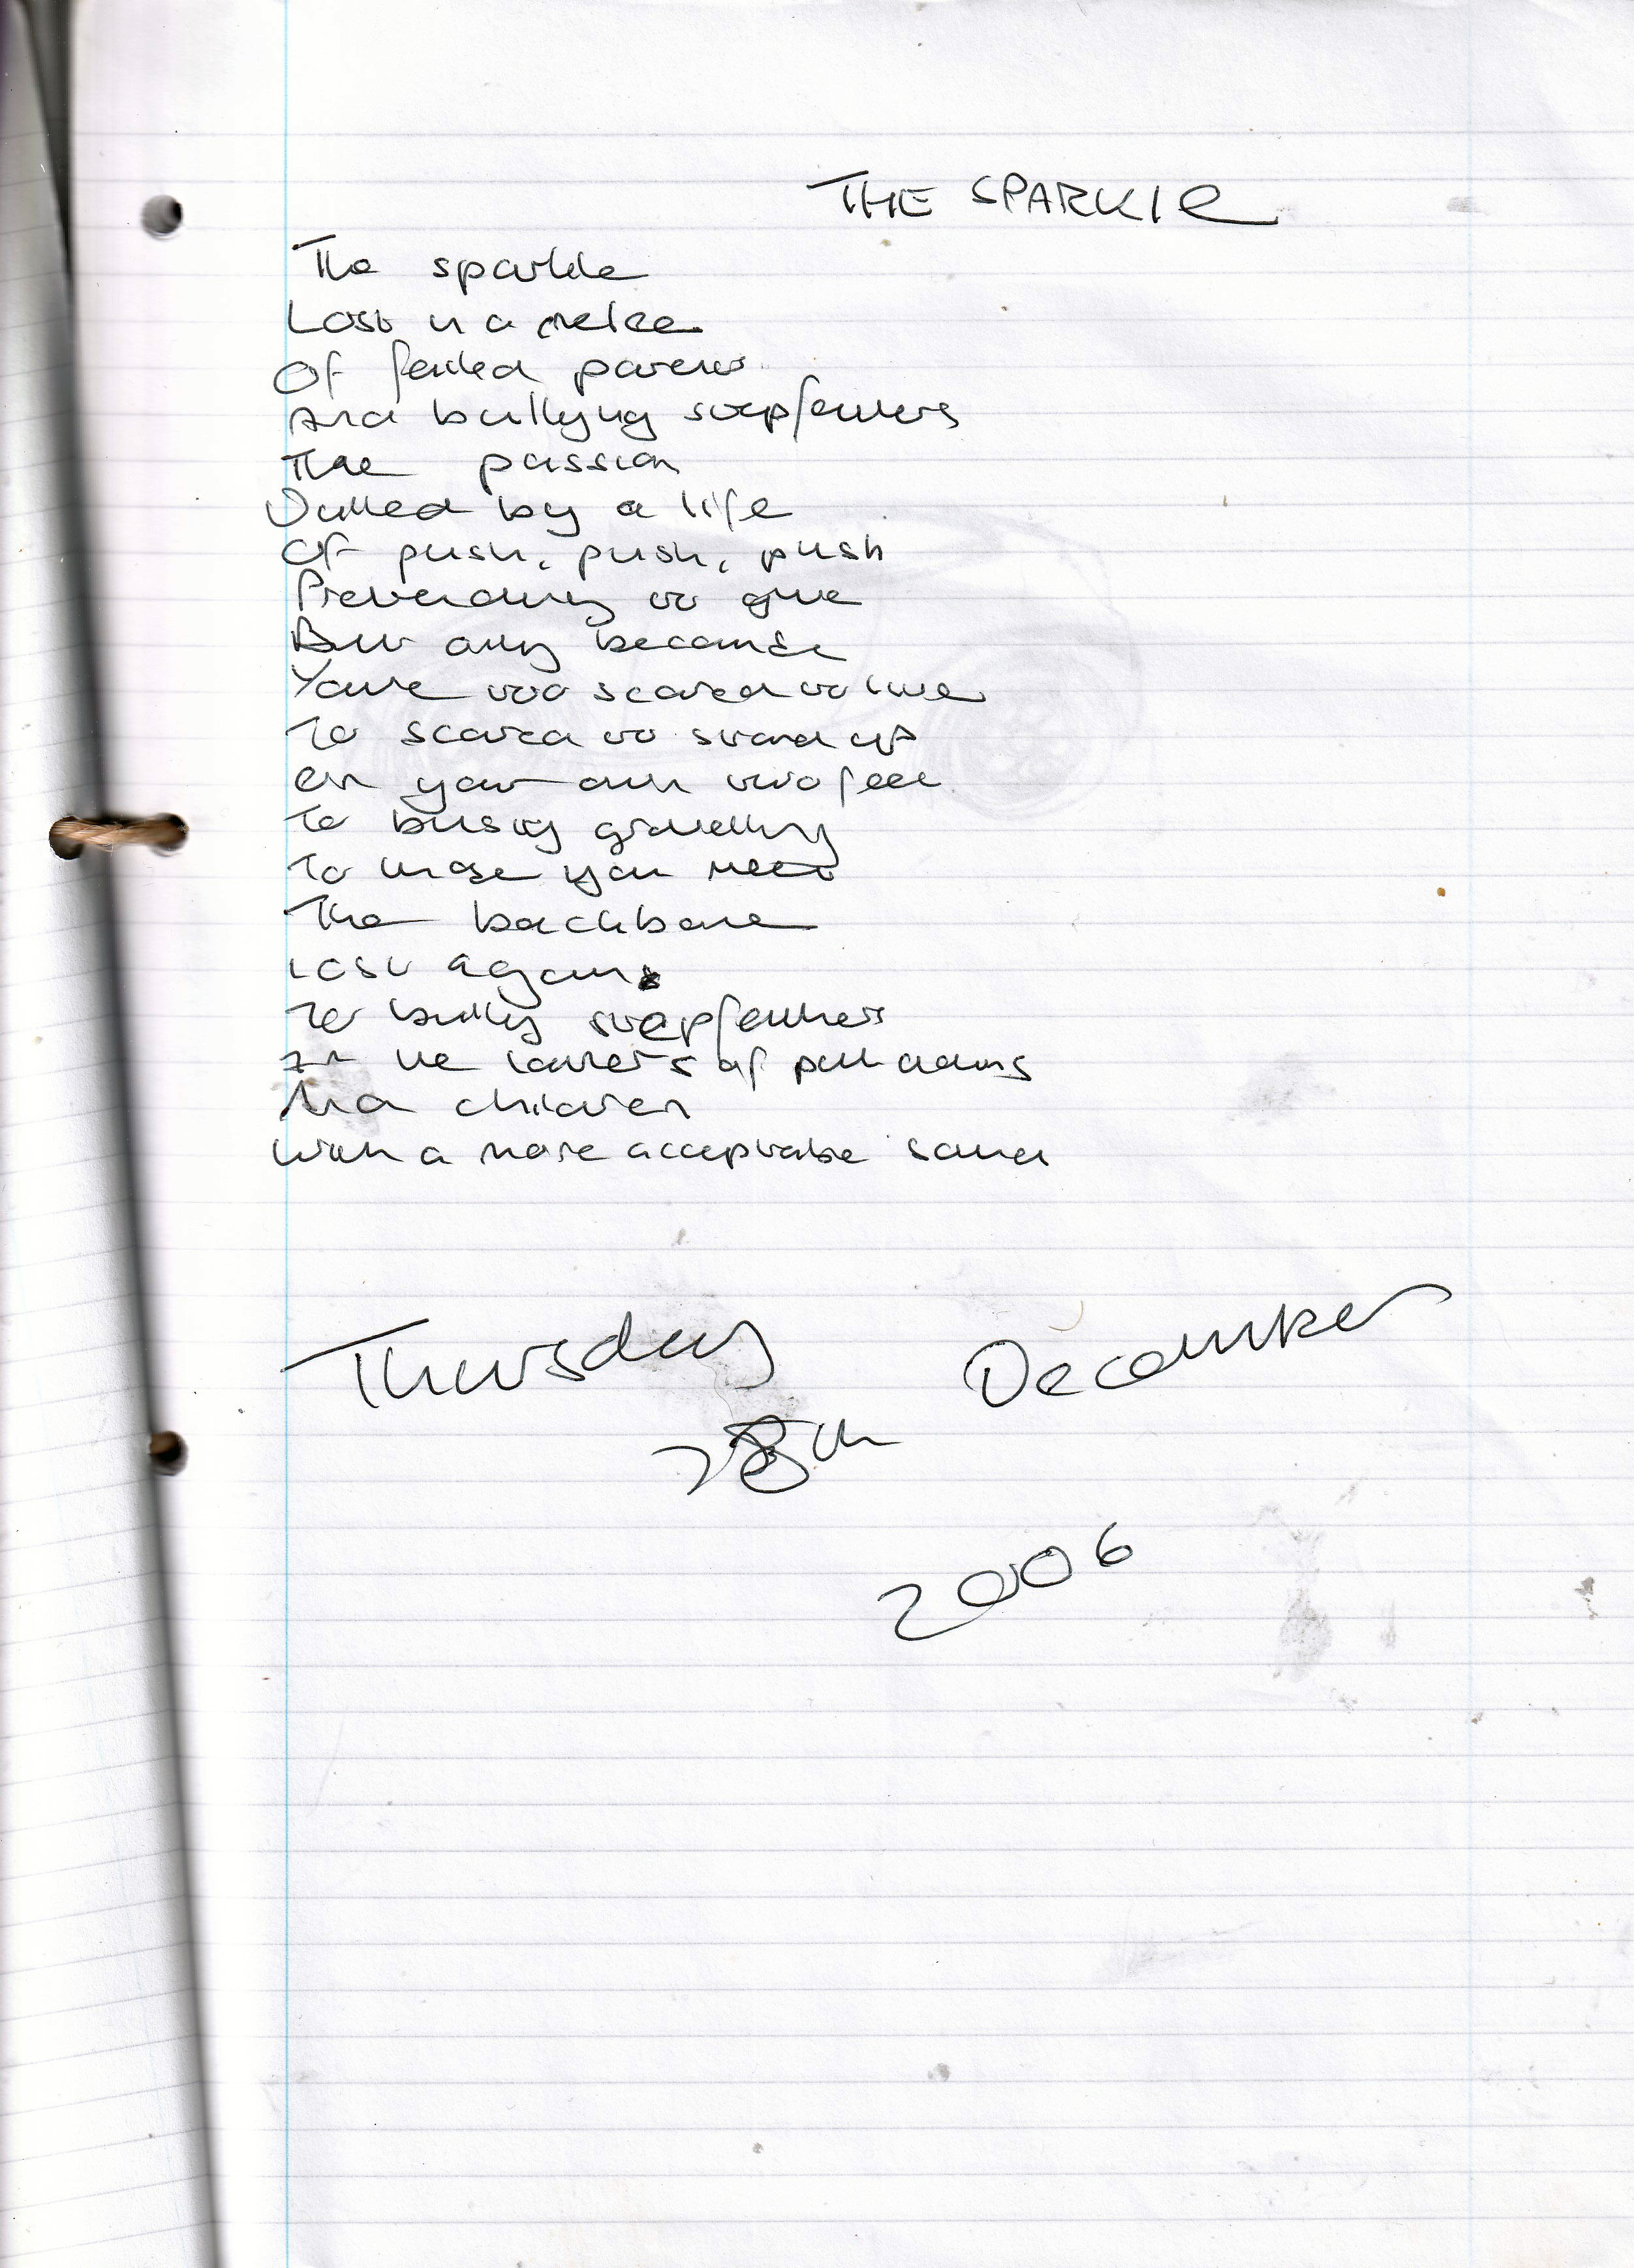 THE SPARKlE
The sparkle
Lost in a melee
Of failed parents
And bullying stepfathers
The passion
Dulled by a life
Of push, push, push
Pretending to give
But only because
You're too scared to live
To scared to stand up
On your own two feet
To busy grovelling
To those you meet
The backbone
Lost again
To bully stepfathers
In the towers of
And children
With a more acceptable sound
Thursday
December
28th
2006